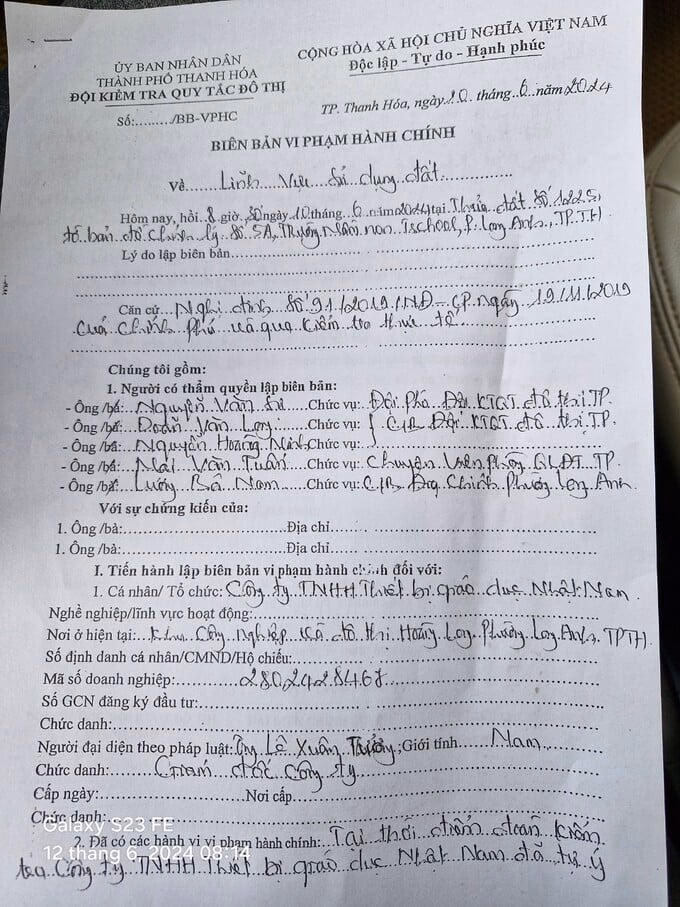 ỦY BAN NHÂN DÂN
THÀNH PHỐ THANH HÓA
ĐỘI KIỂM TRA QUY TẮC ĐÔ THỊ
Số:........./BB-VPHC
CỘNG HÒA XÃ HỘI CHỦ NGHĨA VIỆT NAM
Độc lập - Tự do - Hạnh phúc
TP. Thanh Hóa, ngày 10 tháng 6 năm 2024
BIÊN BẢN VI PHẠM HÀNH CHÍNH
Về Lĩnh vực sử dụng đất
Hôm nay, hồi 8 giờ, 30 ngày 10 tháng 6 năm 2024 tại Thửa đất số 1225,
tờ bản đồ chỉnh lý số 5A, Trường Mầm non Ischool, P. Long Anh, TP.TH.
Lý do lập biên bản
Căn cứ Nghị định số 91/2019/NĐ-CP ngày 19/11/2019
của Chính Phủ và qua kiểm tra thực tế
Chúng tôi gồm:
1. Người có thẩm quyền lập biên bản:
- Ông /bà: Nguyễn Văn Chức vụ: Đội Phó Đội KTQT đô thị TP.
- Ông /bà: Doãn Văn Long Chức vụ: C/B Đội KTQT đô thị TP.
- Ông /bà: Nguyễn Hoàng Chức vụ:
- Ông /bà: Mai Văn Tuấn Chức vụ: Chuyên viên phòng QLĐT TP.
- Ông /bà: Lương Bá Nam Chức vụ: C/B Địa Chính Phường Long Anh
Với sự chứng kiến của:
1. Ông /bà: Địa chỉ
1. Ông /bà: Địa chỉ
I. Tiến hành lập biên bản vi phạm hành chính đối với:
1. Cá nhân/ Tổ chức: Công ty TNHH Thiết bị giáo dục Nhật Nam
Nghề nghiệp/lĩnh vực hoạt động:
Nơi ở hiện tại: Khu Công Nghiệp và đô thị Hoàng Long Phường Long Anh, TPTH
Số định danh cá nhân/CMND/Hộ chiếu:
Mã số doanh nghiệp: 2802428468
Số GCN đăng ký đầu tư:
Chức danh:
Người đại diện theo pháp luật: Ông Lê Xuân Trưởng; Giới tính Nam
Chức danh: Giám đốc Công ty
Cấp ngày: Nơi cấp
Chức danh:
Galaxy S23 FE
2. Đã có các hành vi vi phạm hành chính: Tại thời điểm đoàn kiểm
12 tháng 6, 2024 08:14
tra Công ty TNHH Thiết bị giáo dục Nhật Nam đã tự ý